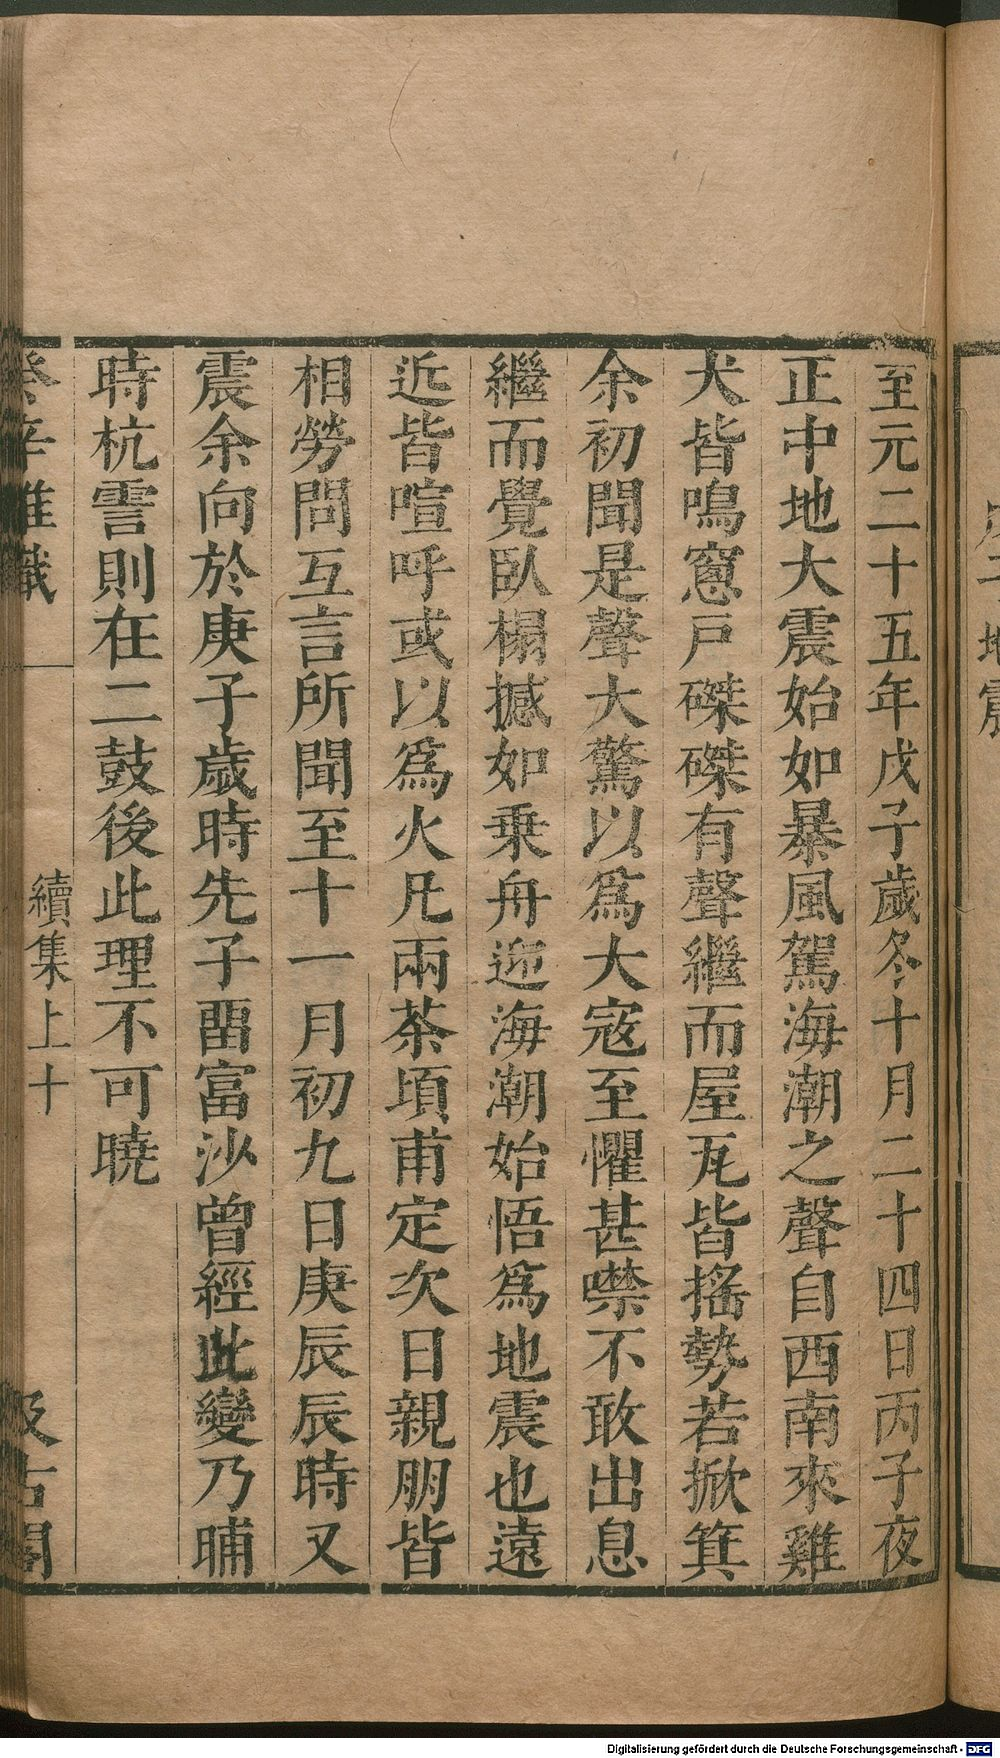 至元二十五年戊子歲冬十月二十四日丙子夜
正中地大震始如暴風駕海潮之聲自西南來雞
犬皆鳴窻戸磔磔有聲繼而屋瓦皆搖勢若掀箕
余初聞是聲大驚以爲大寇至懼甚噤不敢出息
繼而覺臥榻撼如乗舟迎海潮始悟爲地震也遠
近皆喧呼或以爲火凡兩茶頃甫定次日親朋皆
相勞問互言所聞至十一月初九日庚辰辰時又
震余向於庚子歲時先子畱富沙曾經此變乃晡
時杭霅則在二鼓後此理不可曉
癸辛雜識
續集上十
汲古閣
Digitalisierung gefördert durch die Deutsche Forschungsgemeinschaft - DFG